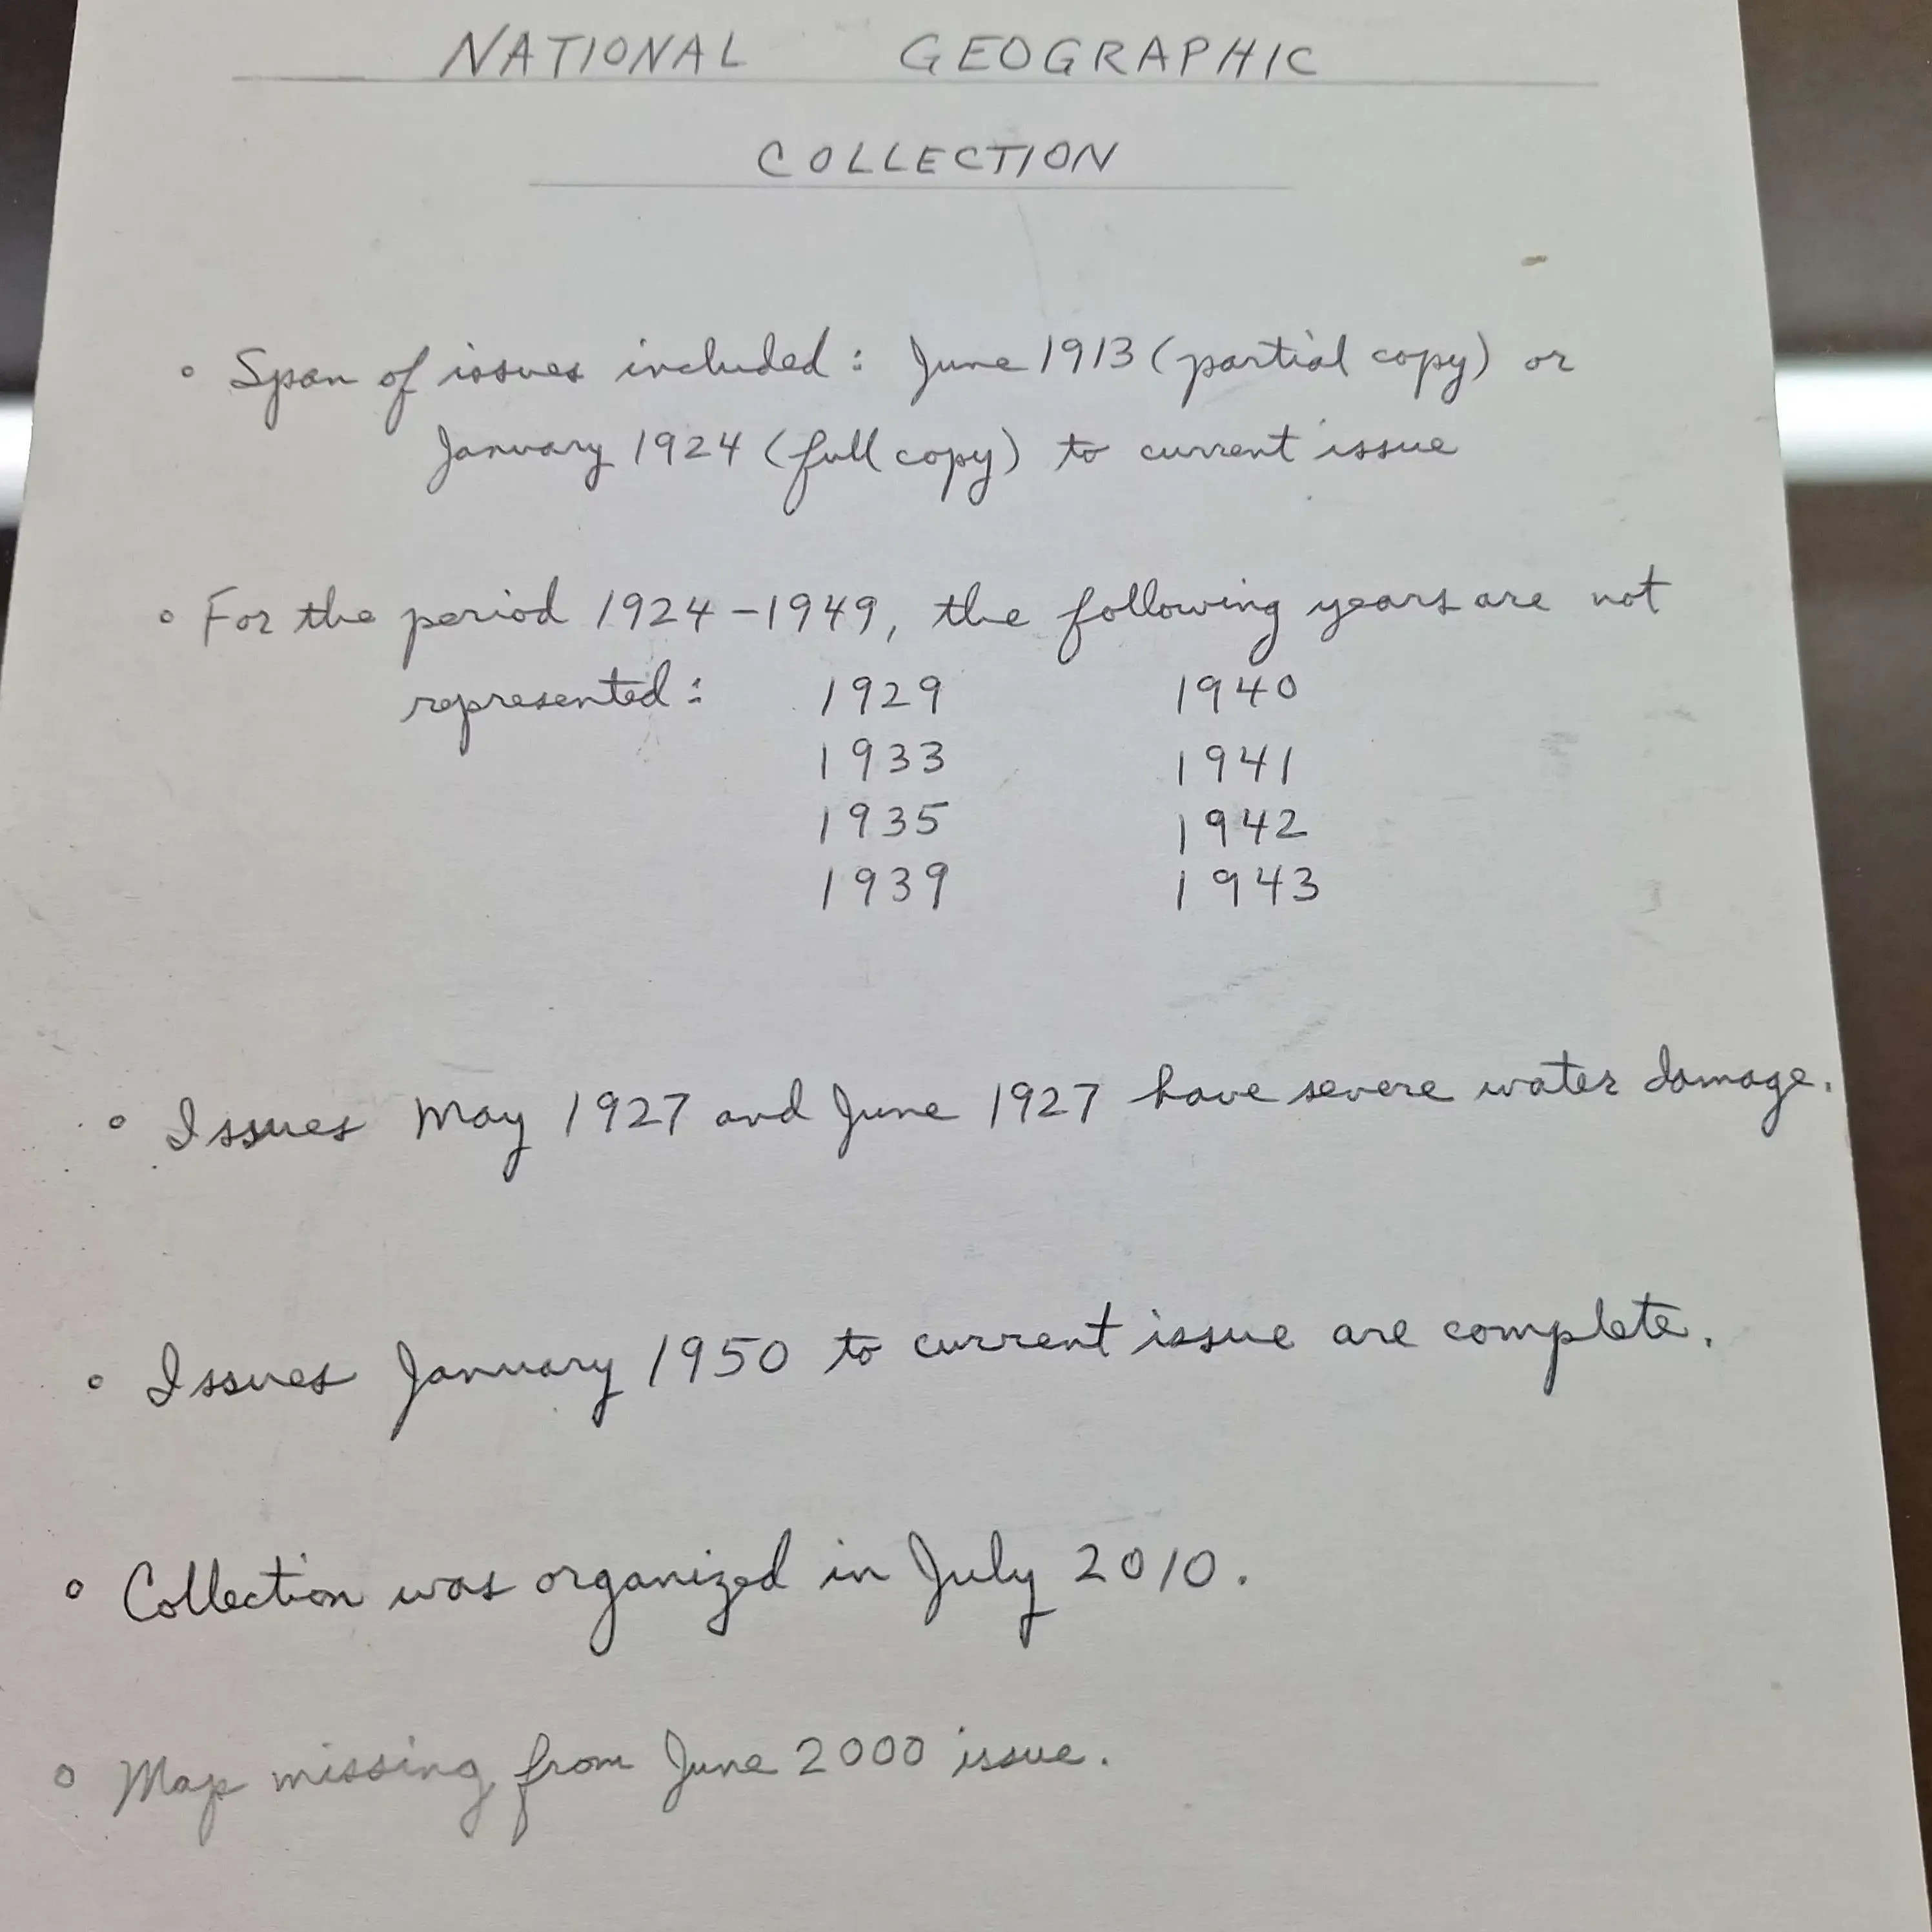 NATIONAL GEOGRAPHIC
COLLECTION
◦ Span of issues included: June 1913 (partial copy) or
January 1924 (full copy) to current issue
◦ For the period 1924-1949, the following years are not
represented: 1929 1940
1933 1941
1935 1942
1939 1943
◦ Issues May 1927 and June 1927 have severe water damage.
◦ Issues January 1950 to current issue are complete.
◦ Collection was organized in July 2010.
◦ Map missing from June 2000 issue.